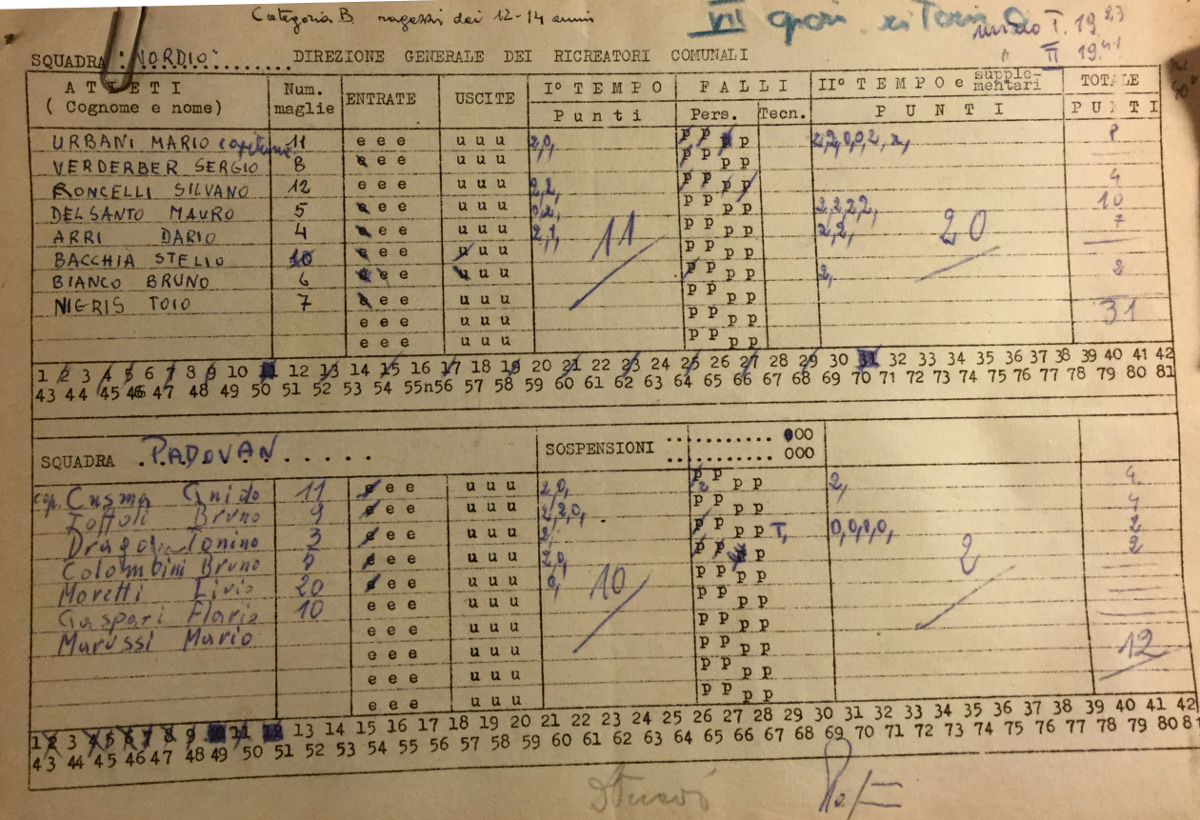 Categoria B ragazzi dei 12-14 anni
VII
inizio T. 19 23
" II 19 41
SQUADRA NORDIO DIREZIONE GENERALE DEI RICREATORI COMUNALI
ATLETI (Cognome e nome) Num. maglie ENTRATE USCITE I° TEMPO Punti FALLI Pers. Tecn. II° TEMPO e supplementari PUNTI TOTALE PUNTI
URBANI MARIO capitano 11 e e e u u u 2,0, p p p p 2,2,0,0,2,2, 8
VERDERBER SERGIO 8 e e e u u u p p p p
RONCELLI SILVANO 12 e e e u u u 2,2, p p p p 4
DELSANTO MAURO 5 e e e u u u 0,2, p p p p 2,2,2,2, 10
ARRI DARIO 4 e e e u u u 2,1, 11 p p p p 2,2, 20 7
BACCHIA STELIO 10 e e e u u u p p p p
BIANCO BRUNO 6 e e e u u u p p p p 2, 2
NIGRIS TOIO 7 e e e u u u p p p p 31
e e e u u u p p p p
e e e u u u p p p p
1 2 3 4 5 6 7 8 9 10 11 12 13 14 15 16 17 18 19 20 21 22 23 24 25 26 27 28 29 30 31 32 33 34 35 36 37 38 39 40 41 42
43 44 45 46 47 48 49 50 51 52 53 54 55n56 57 58 59 60 61 62 63 64 65 66 67 68 69 70 71 72 73 74 75 76 77 78 79 80 81
SQUADRA PADOVAN SOSPENSIONI .......... 000
.......... 000
cap. Cusma Guido 11 e e e u u u 2,0, p p p p 2, 4
Toffoli Bruno 9 e e e u u u 2,2,0, p p p p 4
Drago Tonino 3 e e e u u u 2, p p p p T, 0,0,0,0, 2
Colombini Bruno 5 e e e u u u 2,0, p p p p 2
Moretti Livio 20 e e e u u u 0, 10 p p p p 2
Gaspari Flavio 10 e e e u u u p p p p
Marussi Mario e e e u u u p p p p
e e e u u u p p p p 12
e e e u u u p p p p
e e e u u u p p p p
1 2 3 4 5 6 7 8 9 10 11 12 13 14 15 16 17 18 19 20 21 22 23 24 25 26 27 28 29 30 31 32 33 34 35 36 37 38 39 40 41 42
43 44 45 46 47 48 49 50 51 52 53 54 55 56 57 58 59 60 61 62 63 64 65 66 67 68 69 70 71 72 73 74 75 76 77 78 79 80 81